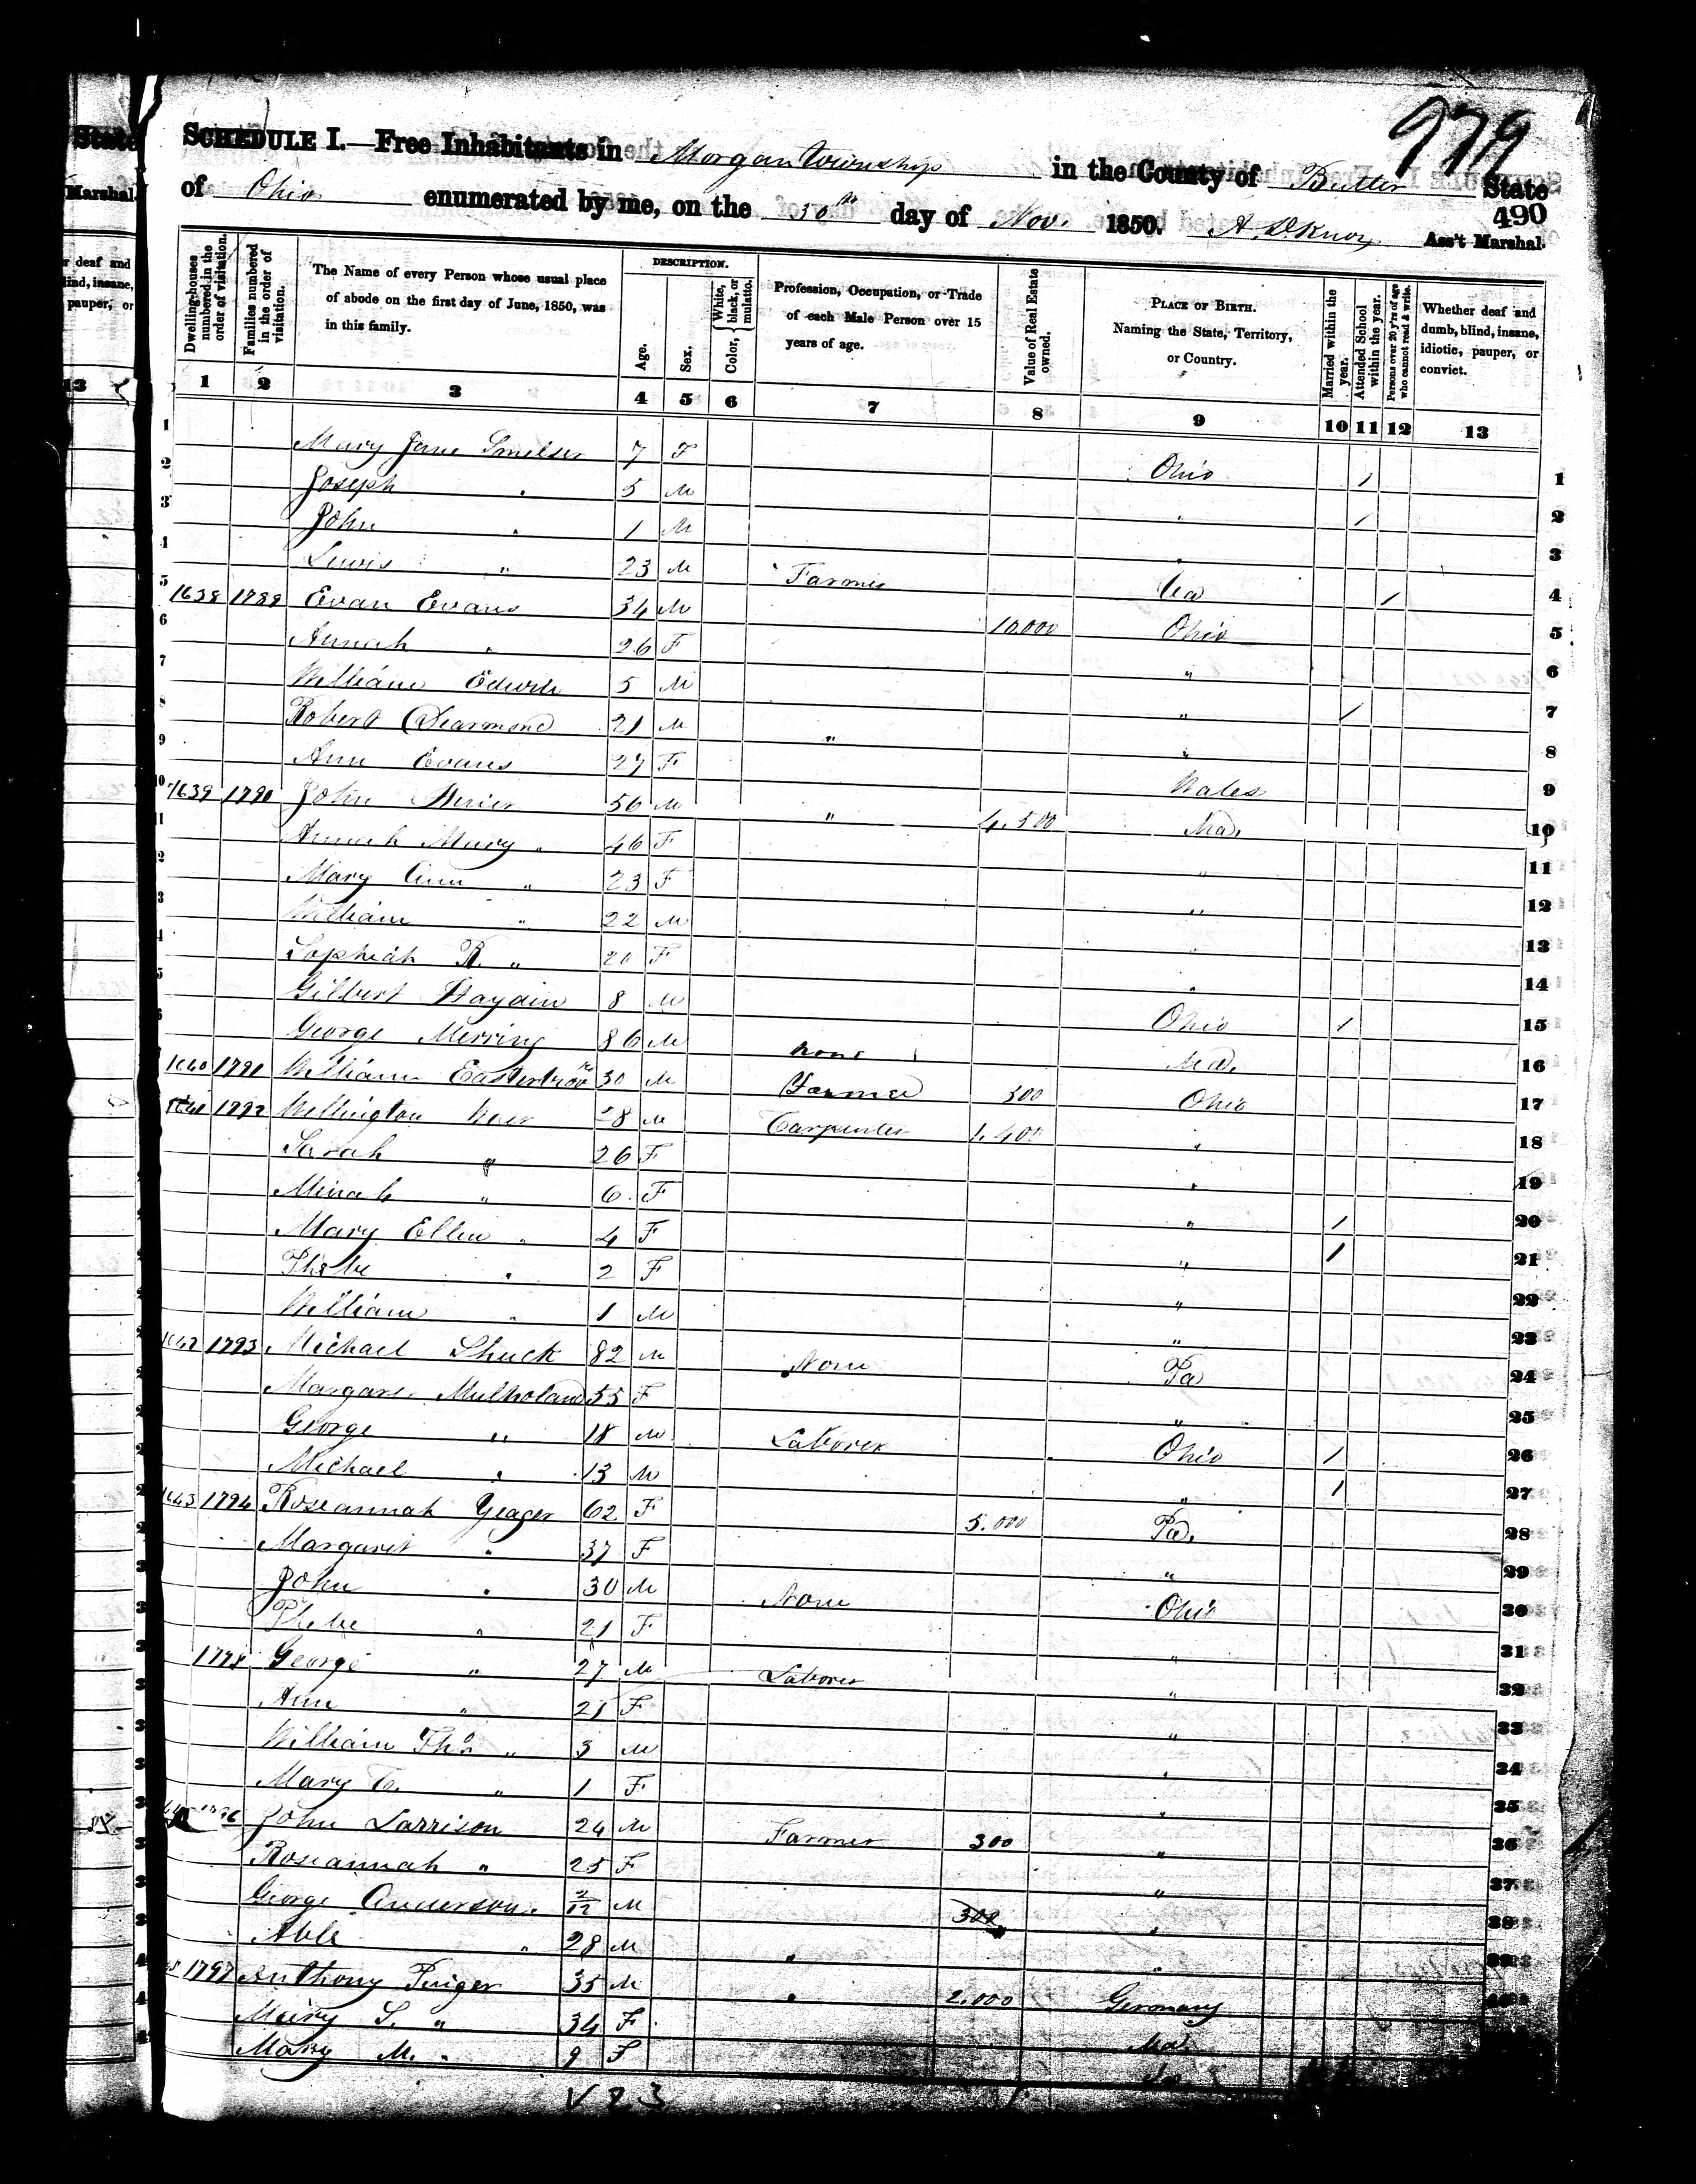 979
SCHEDULE I.—Free Inhabitants in Morgan Township in the County of Butler State
of Ohio enumerated by me, on the 30th day of Nov. 1850. A. D. Knox Ass't Marshal.
490
Dwelling-houses numbered in the order of visitation.
Families numbered in the order of visitation.
The Name of every Person whose usual place of abode on the first day of June, 1850, was in this family.
DESCRIPTION.
Age.
Sex.
Color, { White, black, or mulatto.
Profession, Occupation, or Trade of each Male Person over 15 years of age.
Value of Real Estate owned.
PLACE OF BIRTH. Naming the State, Territory, or Country.
Married within the year.
Attended School within the year.
Persons over 20 y'rs of age who cannot read & write.
Whether deaf and dumb, blind, insane, idiotic, pauper, or convict.
1 2 3 4 5 6 7 8 9 10 11 12 13
1 Mary Jane Smelser 7 F Ohio / 1
2 Joseph " 5 M " / 2
3 John " 1 M " 3
4 Lewis " 23 M Farmer / 4
5 1638 1789 Evan Evans 34 M 10.000 Ohio 5
6 Annah " 26 F " 6
7 William 5 M " / 7
8 Robert Dearmond 21 M " " 8
9 Ann Evans 27 F Wales 9
1639 1790 John 50 M " 4.500 Md. 10
Annah Mary " 46 F " 11
Mary Ann " 23 F " 12
William " 22 M " 13
Sophiah R. " 20 F " 14
Gilbert 8 M Ohio / 15
George Merring 86 M None Md. 16
1640 1791 William 30 M Farmer 300 Ohio 17
1641 1792 Wellington 28 M Carpenter 1.400 " 18
Sarah " 26 F " 19
" 6 F " / 20
Mary Ellen " 4 F " / 21
Phebe " 2 F " 22
William " 1 M " 23
1642 1793 Michael Shuck 82 M None Pa 24
Margaret Mulholand 55 F " 25
George " 18 M Laborer Ohio / 26
Michael " 13 M " / 27
1643 1794 Roseannah Yeager 62 F 5.000 Pa. 28
Margaret " 37 F " 29
John " 30 M None Ohio 30
Phebe " 21 F " 31
1795 George " 27 M Laborer " 32
Ann " 21 F " 33
William Thos " 3 M " 34
Mary C. " 1 F " 35
John Larrison 24 M Farmer 300 " 36
Roseannah " 25 F " 37
George Anderson 2/12 M 300 " 38
Able " 28 M " " 39
1797 Anthony 35 M " 2.000 Germany
Mary S. " 34 F Md
Mary M. " 9 F
V 23
State
Marshal.
r deaf and
lind, insane,
pauper, or
13